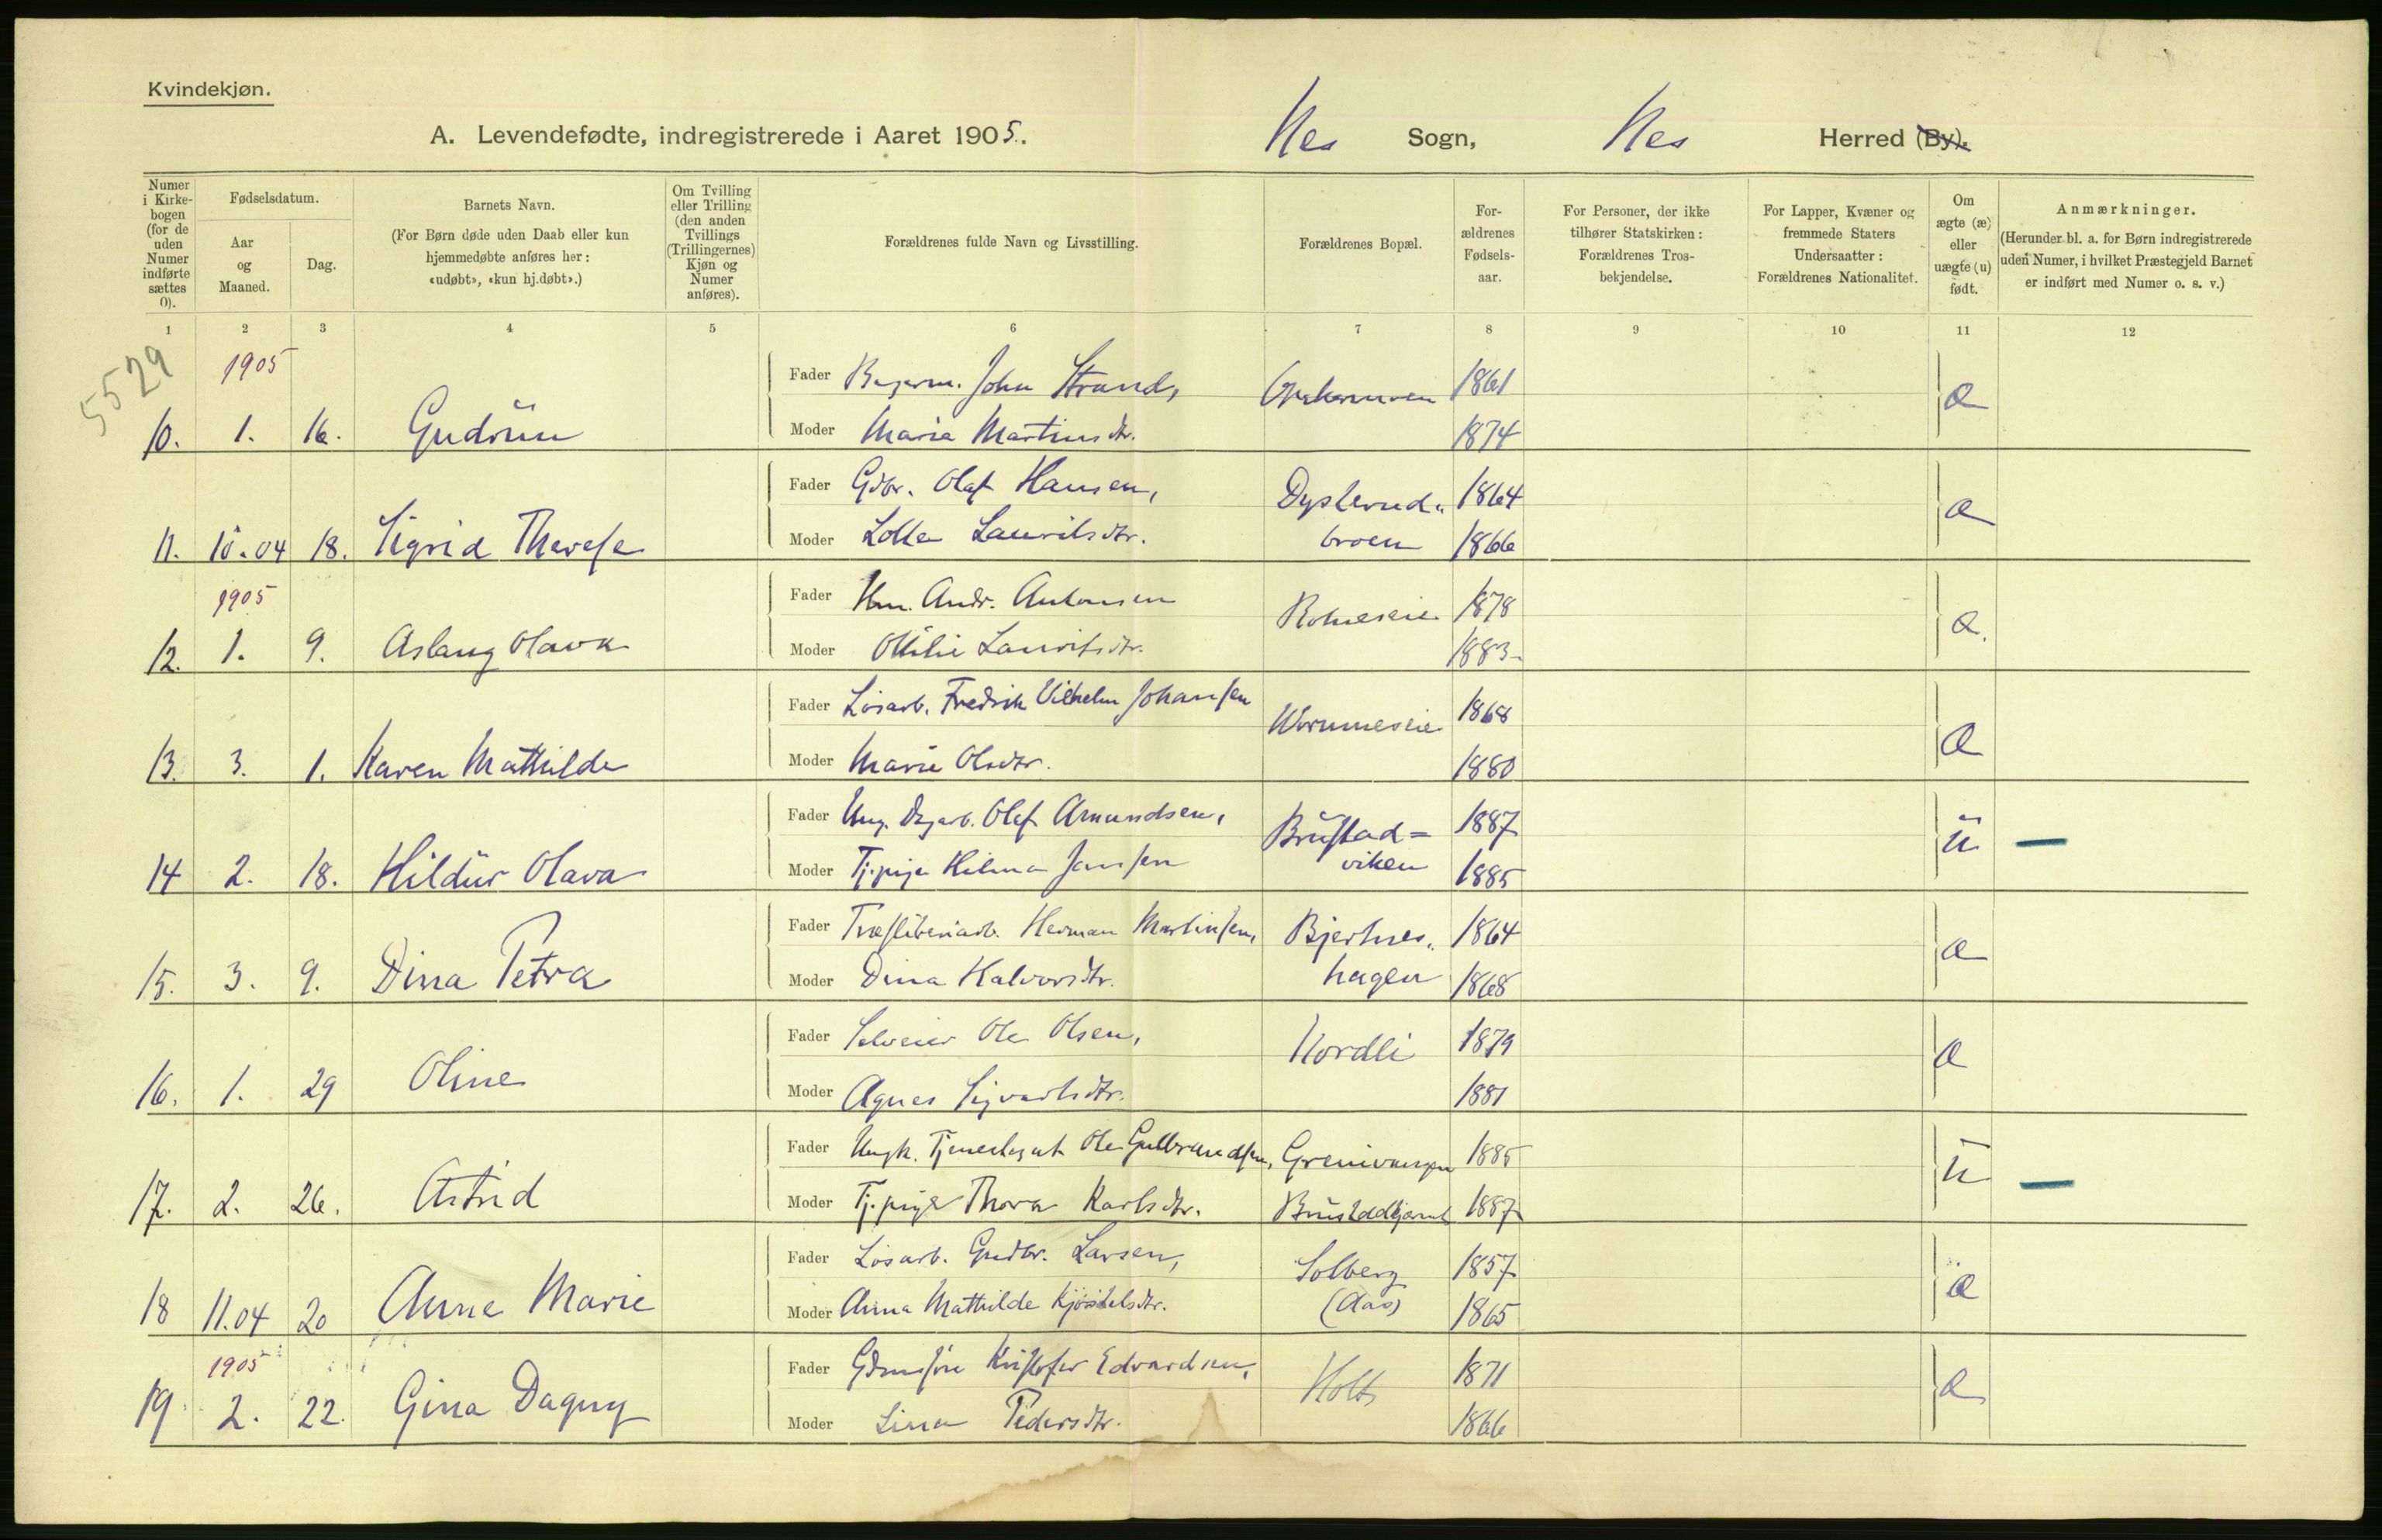 Kvindekjøn.
A. Levendefødte, indregistrerede i Aaret 1905.
Nes Sogn, Nes Herred (By).
Numer i Kirkebogen (for de uden Numer indførte sættes 0).
Fødselsdatum.
Aar og Maaned.
Dag.
Barnets Navn.
(For Børn døde uden Daab eller kun hjemmedøbte anføres her: «udøbt», «kun hj.døbt».)
Om Tvilling eller Trilling (den anden Tvillings (Trillingernes) Kjøn og Numer anføres).
Forældrenes fulde Navn og Livsstilling.
Forældrenes Bopæl.
Forældrenes Fødselsaar.
For Personer, der ikke tilhører Statskirken: Forældrenes Trosbekjendelse.
For Lapper, Kvæner og fremmede Staters Undersaatter: Forældrenes Nationalitet.
Om ægte (æ) eller uægte (u) født.
Anmærkninger.
(Herunder bl. a. for Børn indregistrerede uden Numer, i hvilket Præstegjeld Barnet er indført med Numer o. s. v.)
1 2 3 4 5 6 7 8 9 10 11 12
5529
1905
Fader John Strand, 1861
10. 1. 16. Gudrun Moder Maria Martinsdtr. 1874 æ
Fader Gdbr. Olaf Hansen, Dysterud- 1864
11. 10.04 18. Sigrid Therese Moder Lotte Lauritsdtr. broen 1866 æ
1905
Fader Andr. Antonsen 1878
12. 1. 9. Aslaug Olava Moder Otilie Lauritsdtr. 1883 æ.
Fader Løsarb. Fredrik Vilhelm Johansen Wormeseie 1868
13. 3. 1. Karen Mathilde Moder Marie Olsdtr. 1880 æ
Fader Ung. Dagarb. Olaf Amundsen, Brustad= 1887
14 2. 18. Hildur Olava Moder Tj.pige Hilma Jansen viken 1885 u —
Fader Træsliberiarb. Herman Martinsen, Bjertnes- 1864
15. 3. 9. Dina Petra Moder Dina Halvorsdtr. hagen 1868 æ
Fader Selveier Ole Olsen, Nordli 1879
16. 1. 29 Oline Moder Agnes Sigvartsdtr. 1881 æ
Fader Ungk. Tjenestegut Ole Gulbrandsen, 1885
17. 2. 26. Astrid Moder Tj.pige Thora Karlsdtr. 1887 u —
Fader Løsarb. Gudbr. Larsen, Solberg 1857
18 11.04 20 Anne Marie Moder Anna Mathilde Kjøstelsdtr. (Aas) 1865 æ
1905
Fader Kristofer Edvardsen, Holt 1871
19. 2. 22. Gina Dagny Moder Lina Pedersdtr. 1866 æ